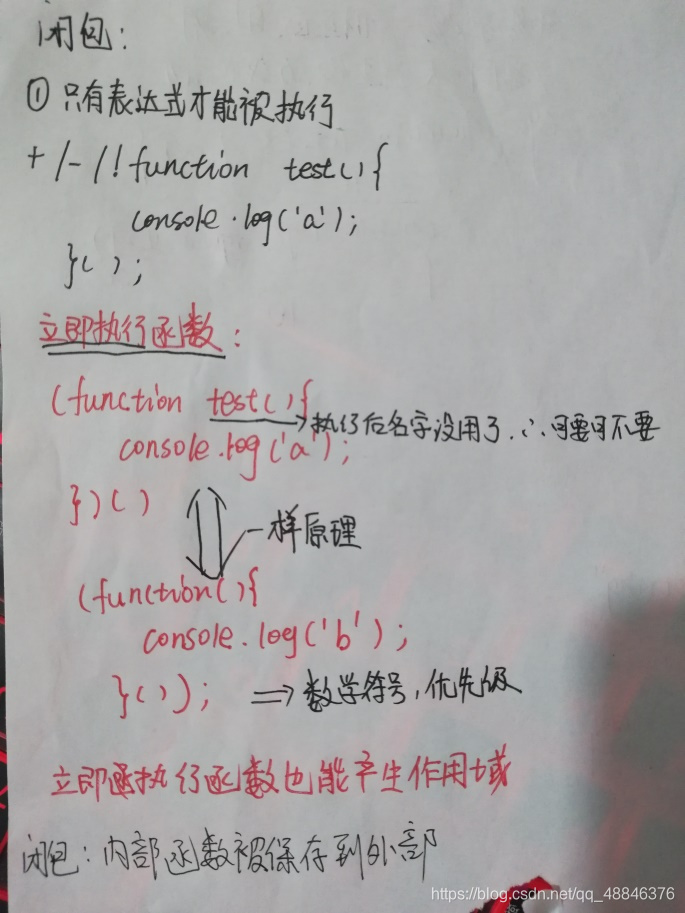 闭包：
① 只有表达式才能被执行
+ / - / ! function test(){
console.log('a');
}();
立即执行函数：
(function test(){
执行后名字没用了.∴可要可不要
console.log('a');
})()
一样原理
(function(){
console.log('b');
}()); => 数学符号,优先级
立即执行函数也能产生作用域
闭包：内部函数被保存到外部
https://blog.csdn.net/qq_48846376